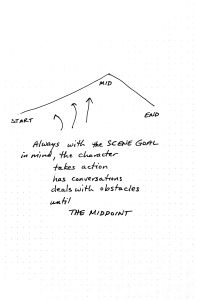 MID
START
END
Always with the SCENE GOAL
in mind, the character
takes action
has conversations
deals with obstacles
until
THE MIDPOINT